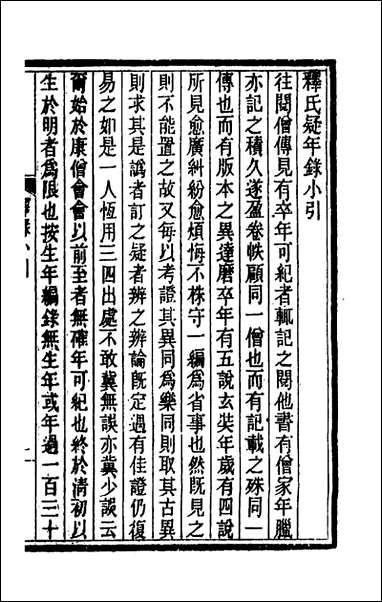 釋氏疑年錄小引
往閱僧傳見有卒年可紀者輒記之閱他書有僧家年臘
亦記之積久遂盈卷帙顧同一僧也而有記載之殊同一
傳也而有版本之異達磨卒年有五說玄奘年歲有四說
所見愈廣糾紛愈煩悔不株守一編爲省事也然既見之
則不能置之故又每以考證其異同爲樂同則取其古異
則求其是譌者訂之疑者辨之辨論既定過有佳證仍復
易之如是一人恆用三四出處不敢冀無誤亦冀少談云
爾始於康僧會會以前至者無確年可紀也終於清初以
生於明者爲限也按生年編錄無生年或年過一百三十